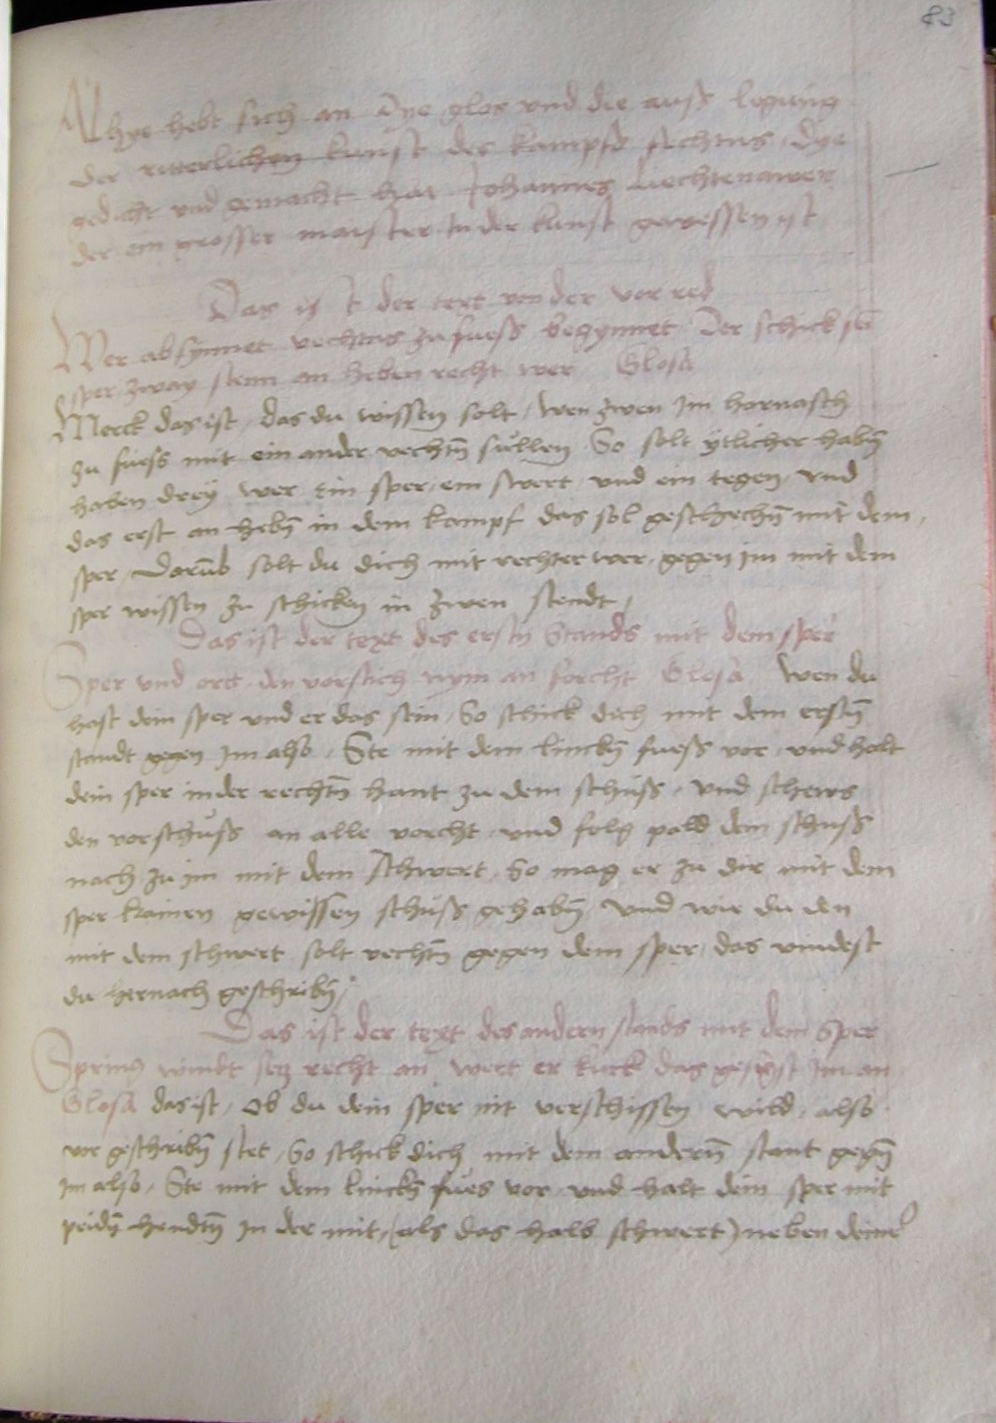 83
Alhye hebt sich an dye glos vnd die auß legung
der ritterlichen kunst des kampfs fechtens, dye
gedicht vnd gemacht hat Johannes Liechtenawer
der ein grosser maister in der kunst gewessen ist
Das ist der text von der vor red
Wer absynnet vechtns zu fueß begynnet Der schick sein
sper zway stenn an heben recht wer Glosa
Merck das ist, das du wissen solt, wen zwen Im harnasch
zu fuess mit ein ander vechtn̄ süllen So solt ytlicher habn̄
haben dreÿ wer ein sper, ein swert vnd ein tegen, vnd
das erst an hebn̄ in dem kampf das sol geschechn̄ mit dem
sper, Darūb solt du dich mit rechter wer, gegen im mit dem
sper wissen zu schicken in zwen stendt,
Das ist der text des erstn̄ Stands mit dem sper
Sper vnd ort, den vorstich nym an forcht Glosa Wen du
hast dein sper vnd er das sein, So schick dich mit dem erstn̄
standt gegen Im also, Ste mit dem linckn̄ fuess vor, vnd halt
dein sper in der rechtn̄ hant zu dem schuss, vnd schews
den vorschuß an alle vorcht, vnd folg pald dem schuß
nach zu im mit dem schwert, So mag er zu dir mit dem
sper kainen gewissen schuß gehabn̄ Vnd wie du den
mit dem schwert solt vechtn̄ gegen dem sper, das vindest
du hernach geschribn̄,
Das ist der text des andern stands mit dem Sper
Spring windt secz recht an wert er zuck das gesigst Im an
Glosa das ist, Ob du dein sper nit verschissen wild, also
vor geschribn̄ stet, So schick dich mit dem andern̄ stant gegn̄
Im also, Ste mit dem linckn̄ fues vor, vnd halt dein sper mit
peidn̄ hendtn̄ In der mit, (als das halb schwert) neben deiner